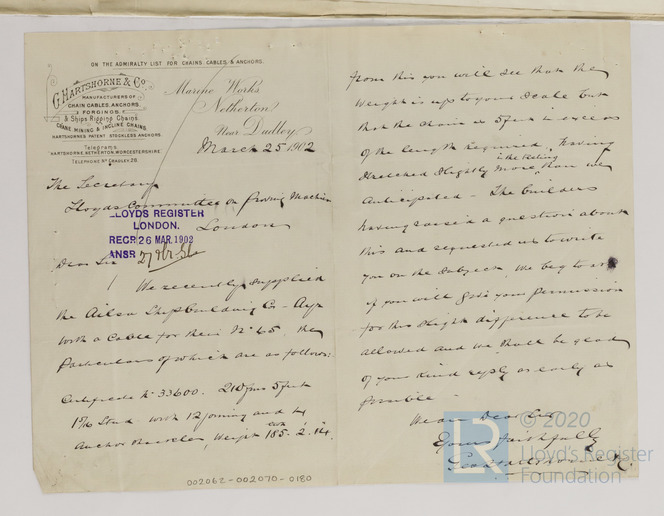 ON THE ADMIRALTY LIST FOR CHAINS CABLES & ANCHORS.
G. HARTSHORNE & Co.
MANUFACTURERS OF
CHAIN CABLES, ANCHORS,
FORGINGS
& Ships Rigging Chains
CRANE, MINING & INCLINE CHAINS
HARTSHORNES PATENT STOCKLESS ANCHORS
Telegrams
HARTSHORNE, NETHERTON, WORCESTERSHIRE.
TELEPHONE No CRADLEY, 26.
Marine Works
Netherton
Near Dudley
March 25 1902
The Secretary
Lloyds Committee on Proving Machines
London
LLOYDS REGISTER
LONDON.
RECD 26 MAR. 1902
ANSR 27
Dear Sir
We recently supplied
the Ailsa Shipbuilding Co - Ayr
with a Cable for their No 65. the
particulars of which are as follows:
Certificate No 33600. 210 fms 5 feet
1 9/16 Stud with 12 joining and 4
Anchor Shackles, Weight cwts 185. 2. 14.
from this you will see that the
Weight is up to your Scale but
that the chain is 5 feet in excess
of the length required, having
stretched slightly more in the testing than we
anticipated - The builders
having raised a question about
this and requested us to write
you on the subject, We beg to ask
if you will give your permission
for this slight difference to be
allowed and we shall be glad
of your kind reply as early as
possible -
We are Dear Sir
Yours faithfully
Geo Hartshorne & Co.
002062-002070-0180
LR
© 2020
Lloyd's Register
Foundation